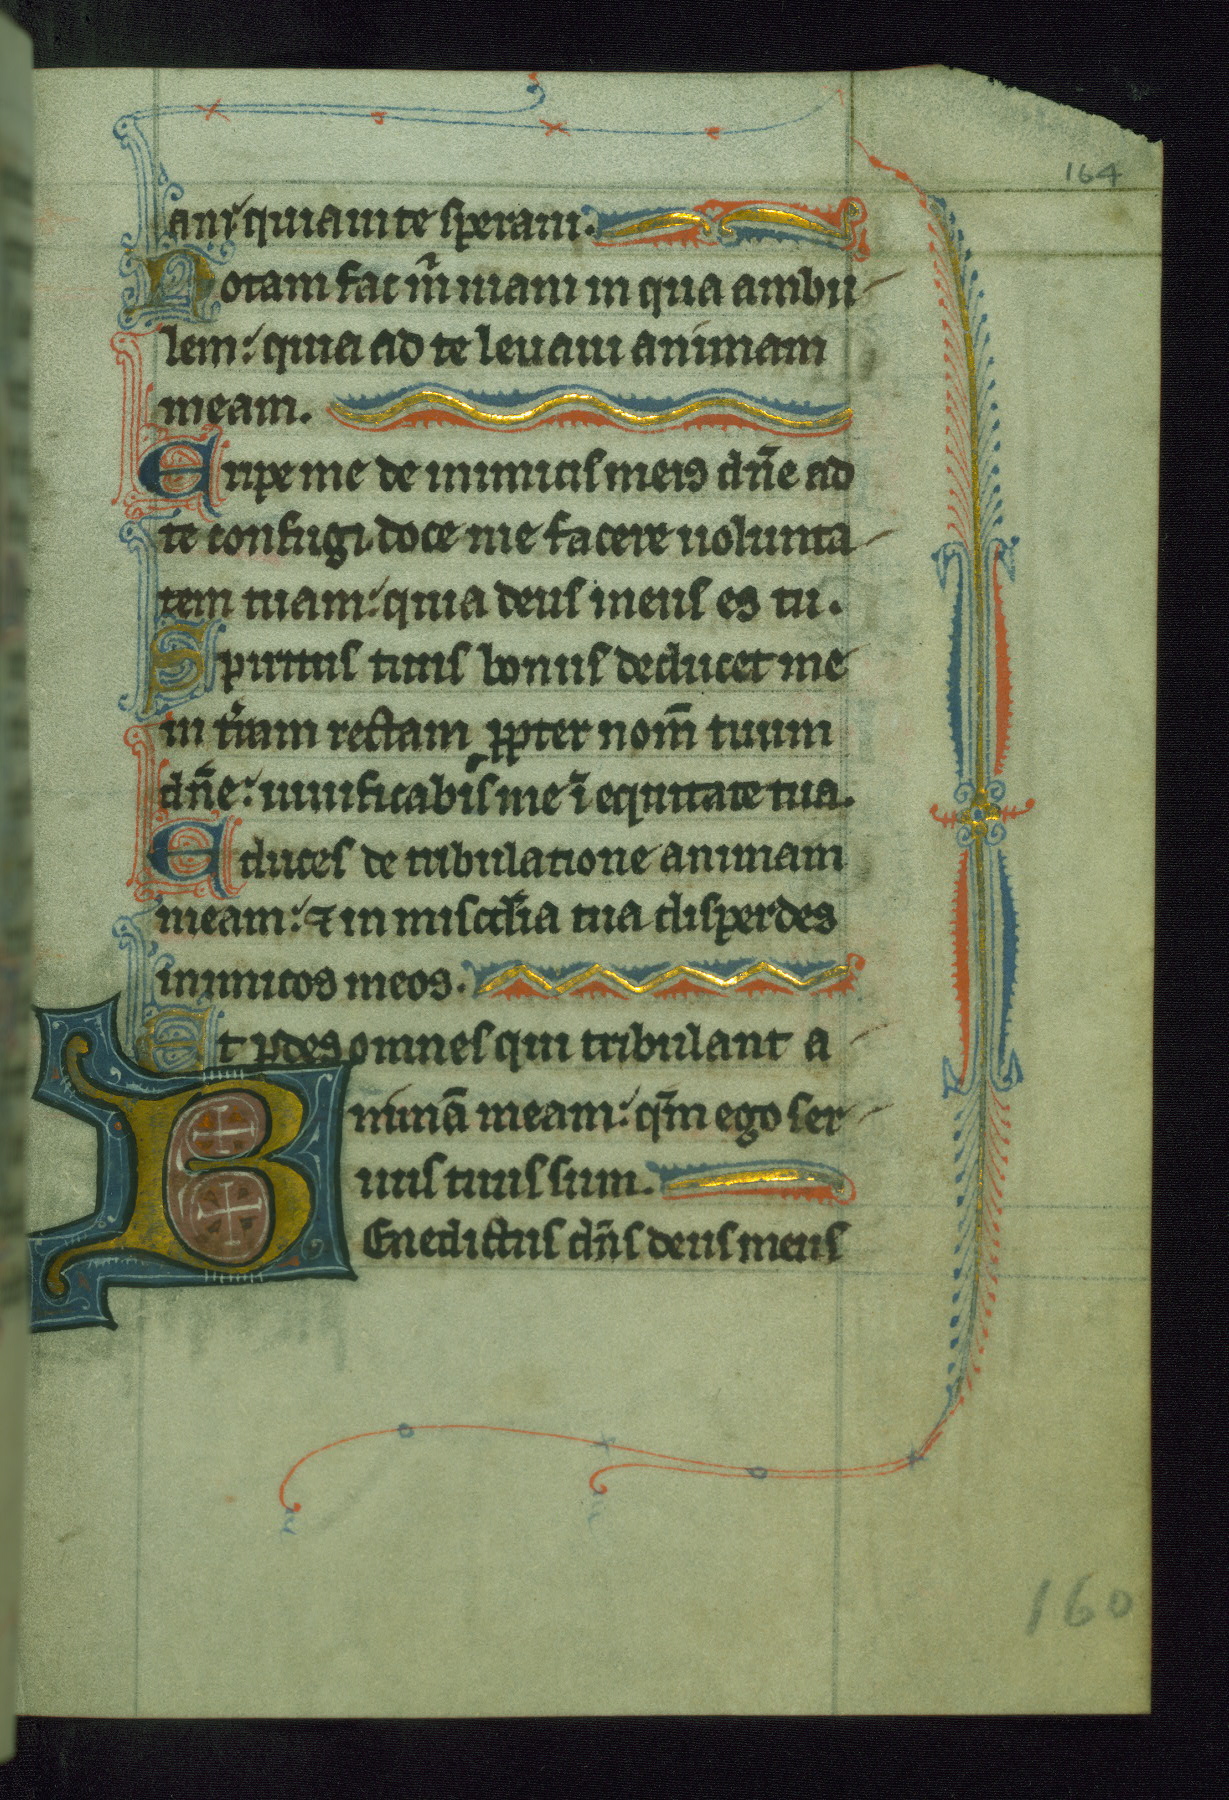 164
am quia in te speraui.
Notam fac m̄ uiam in qua ambu
lem: quia ad te leuaui animam
meam.
Eripe me de inimicis meis dn̄e ad
te confugi doce me facere uolunta
tem tuam: quia deus meus es tu.
Spiritus tuus bonus deducet me
in t̄ram rectam ꝓpter nom̄ tuum
dn̄e: uiuificabis me ī equitate tua.
Educes de tribulatione animam
meam: ⁊ in mis̄cdia tua disperdes
inimicos meos.
Et ꝑdes omnes qui tribulant a
nimā meam: qm̄ ego ser
uus tuus sum.
BEnedictus dn̄s deus meus
160